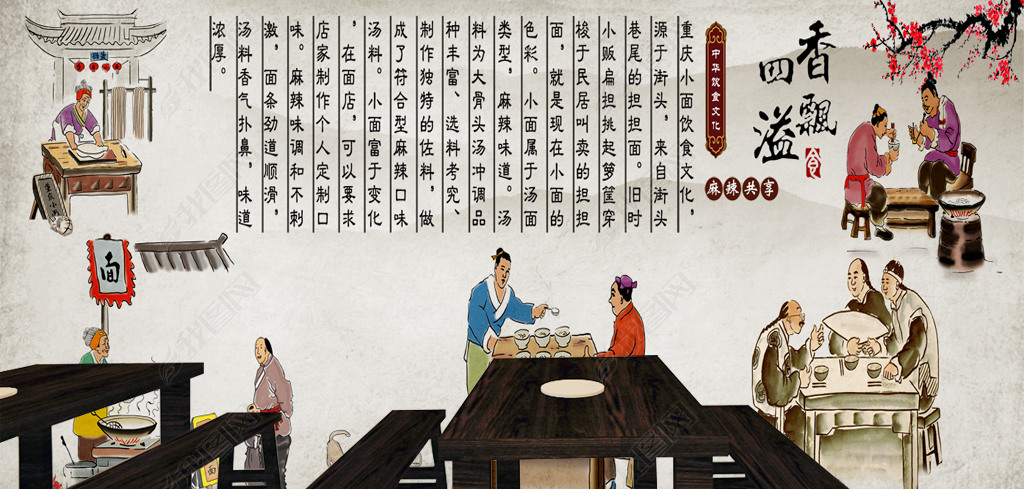 香飄
四溢
中华饮食文化
麻辣共享
重庆小面饮食文化，
源于街头，来自街头
巷尾的担担面。旧时
小贩扁担挑起箩筐穿
梭于民居叫卖的担担
面，就是现在小面的
色彩。小面属于汤面
类型，麻辣味道。汤
料为大骨头汤冲调品
种丰富、选料考究、
制作独特的佐料，做
成了符合型麻辣口味
汤料。小面富于变化
，在面店，可以要求
店家制作个人定制口
味。麻辣味调和不刺
激，面条劲道顺滑，
汤料香气扑鼻，味道
浓厚。
重庆小面
面
面